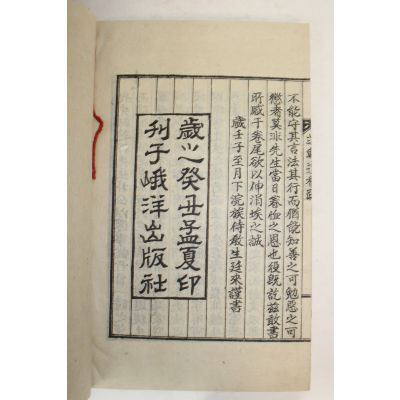 不能守其言法其行而猶能知善之可勉惡之可
懲者莫非先生當日眷恤之恩也役旣訖茲敢書
所感于卷尾欲以伸涓埃之誠
歲壬子至月下浣族侍敎生廷來謹書
歲之癸丑孟夏印
刊于峨洋出版社